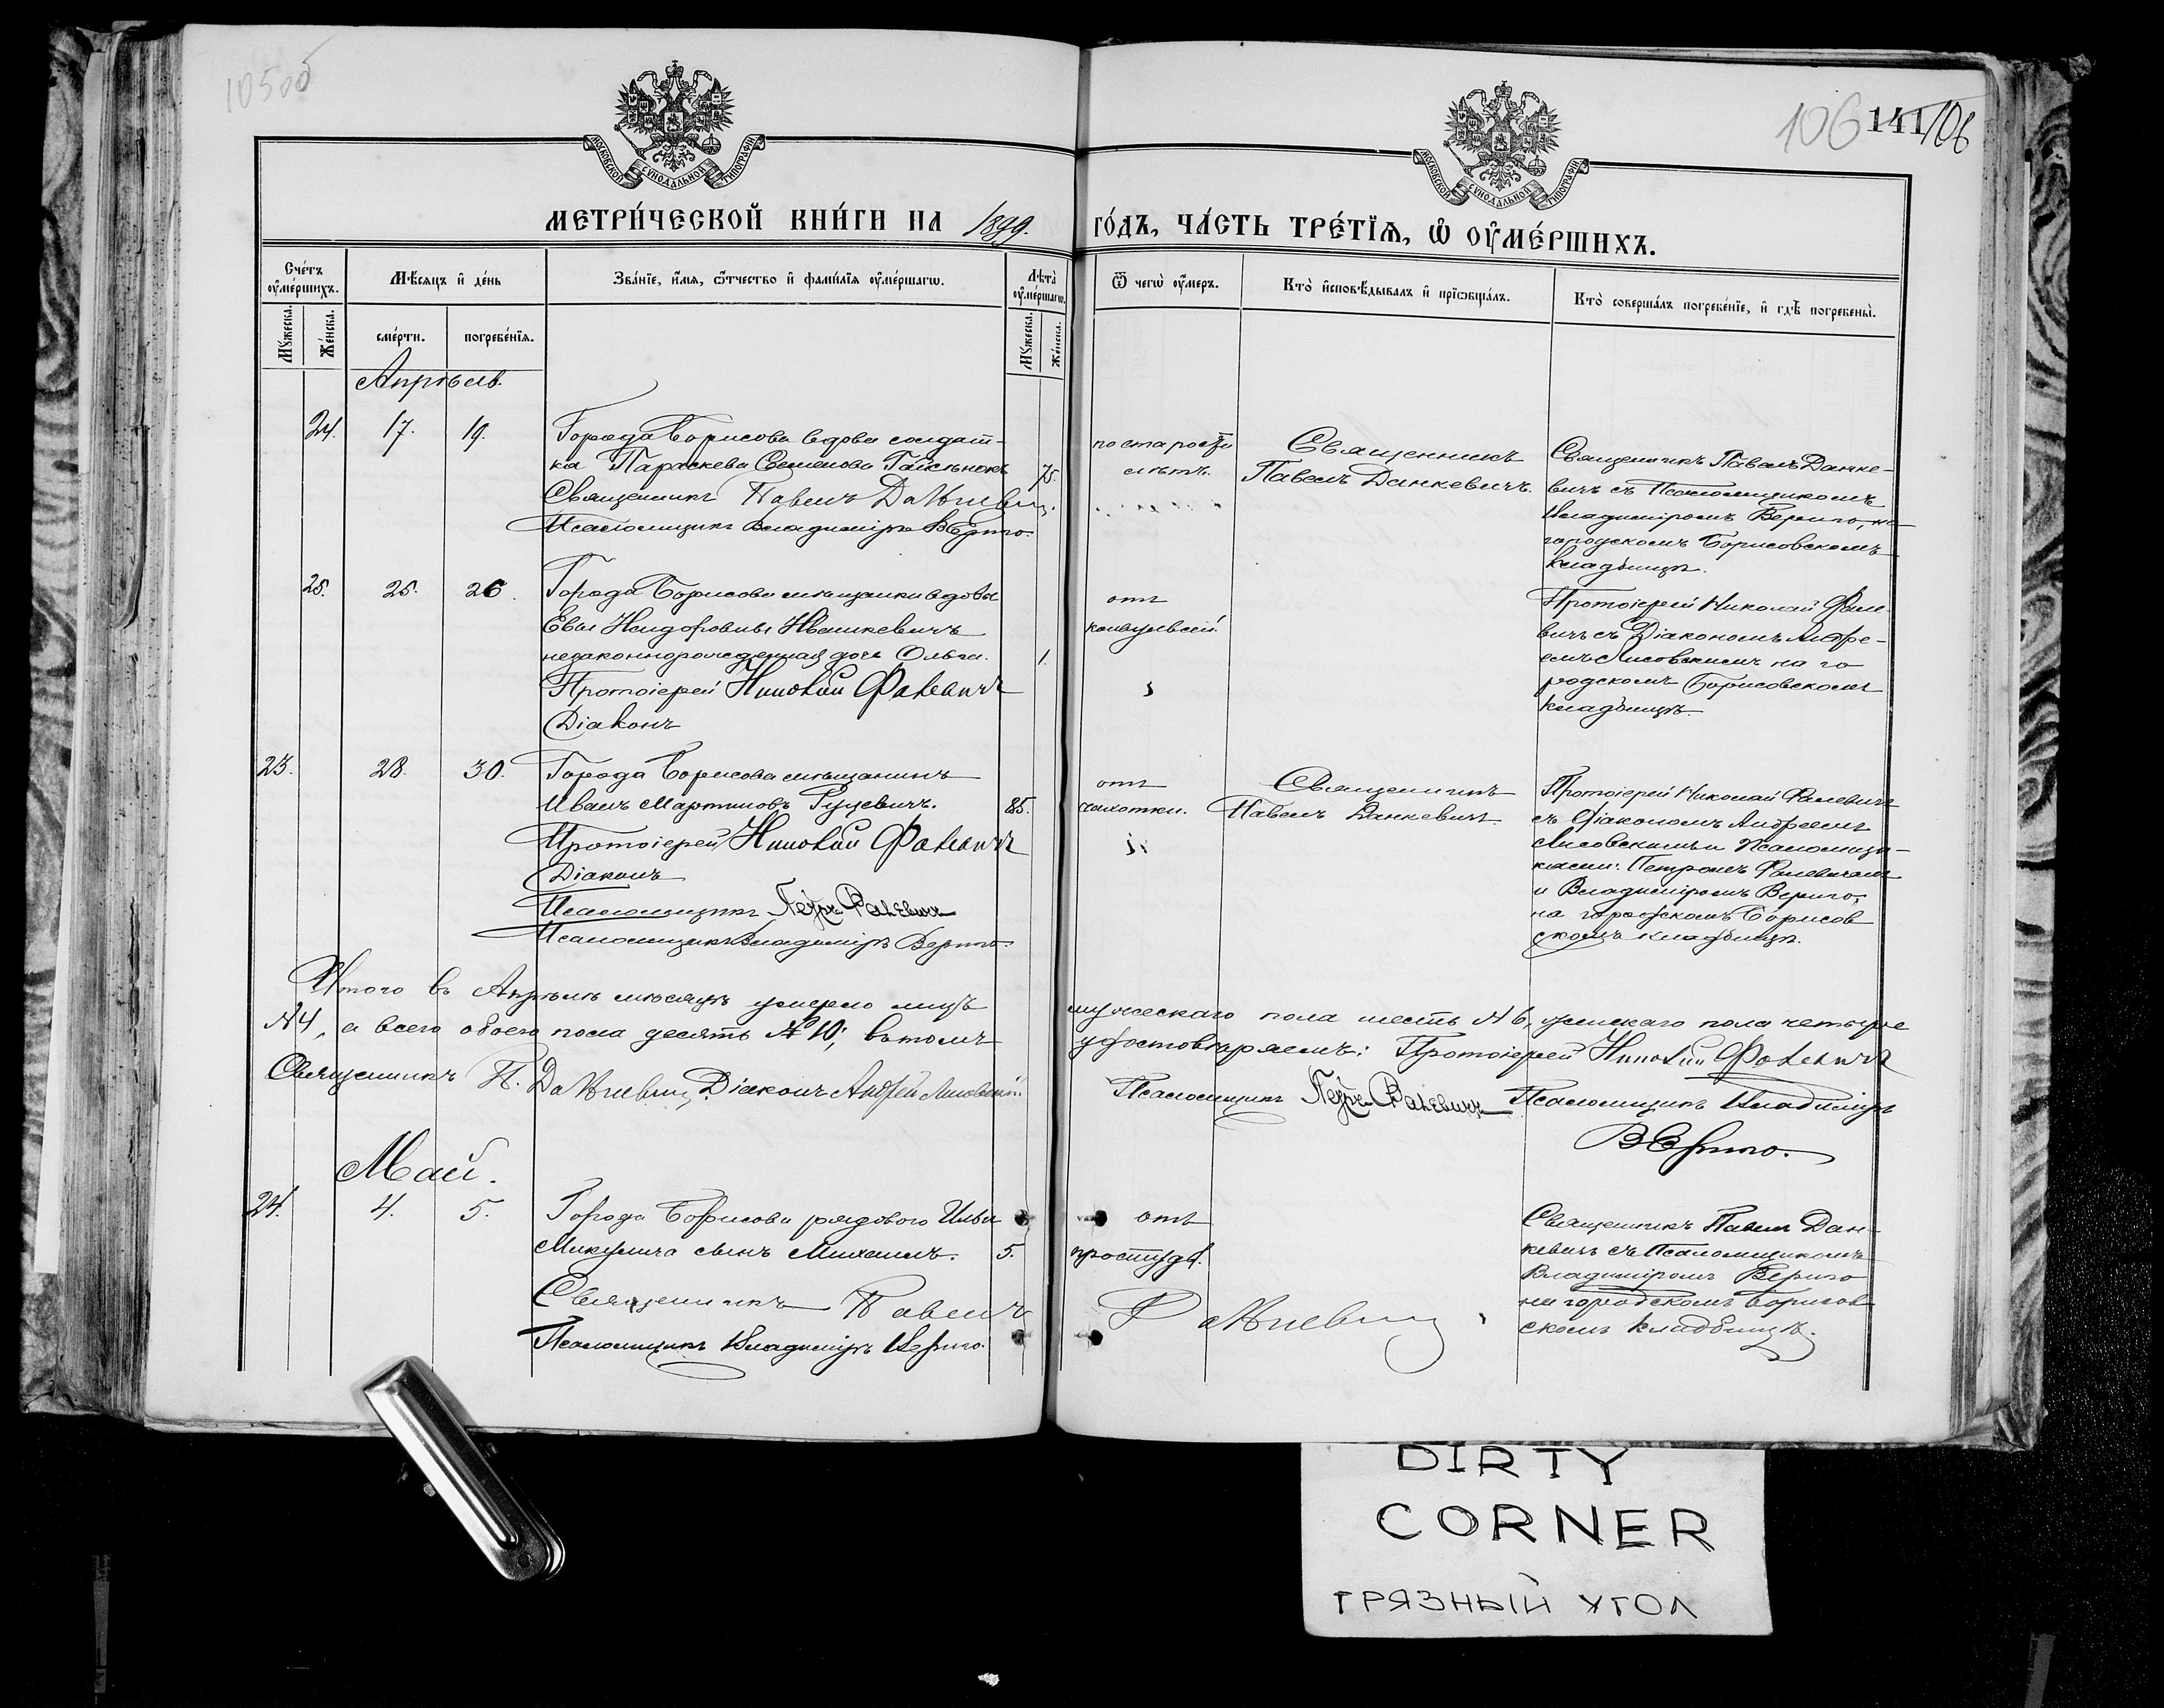 105об
106 141 106
МОСКОВСКОЙ СѴНОДАЛЬНОЙ ТИПОГРАФИИ
МОСКОВСКОЙ СѴНОДАЛЬНОЙ ТИПОГРАФИИ
МЕТРИ́ЧЕСКОЙ КНИ́ГИ НА 1899. ГО́ДЪ, ЧА́СТЬ ТРЕ́ТЇѦ, Ѡ҆ ОУ҆МЕ́РШИХЪ.
Сче́тъ оу҆ме́ршихъ.
Мѣ́сяцъ и҆ де́нь
Зва́нїе, и҆́мѧ, ѻ҆́тчество и҆ фами́лїѧ оу҆ме́ршагѡ.
Лѣта̀ оу҆ме́ршагѡ.
Ѿ чегѡ̀ оу҆́меръ.
Кто̀ и҆сповѣ́дывалъ и҆ прїѡбща́лъ.
Кто̀ соверша́лъ погребе́нїе, и҆ гдѣ̀ погребены̀.
Мꙋ́жеска.
Же́нска.
сме́рти.
погребе́нїѧ.
Мꙋ́жеска.
Же́нска.
Апрѣль.
24. 17. 19.
Города Борисова вдова солдат-
ка Параскева Семенова Гайсѣнокъ 75.
Священникъ Павелъ Данкевич.
Псаломщикъ Владиміръ Верыго.
по старости
лѣтъ.
Священникъ
Павелъ Данкевичъ.
Священникъ Павелъ Данке-
вичъ съ Псаломщикомъ
Владиміромъ Верыго, на
городскомъ Борисовскомъ
кладбищѣ.
25. 25. 26.
Города Борисова мѣщанки вдовы
Евы Исидоровны Ивашкевичъ
незаконнорожденная дочь Ольга. 1.
Протоіерей Николай Фалевичъ
Діаконъ
отъ
конвульсій.
Протоіерей Николай Фале-
вичъ съ Діакономъ Андре-
емъ Лисовскимъ на го
родскомъ Борисовскомъ
кладбищѣ.
23. 28. 30.
Города Борисова мѣщанинъ
Иванъ Мартиновъ Руцевичъ. 85.
Протоіерей Николай Фалевичъ
Діаконъ
Псаломщикъ Петръ Фалевичъ
Псаломщикъ Владиміръ Верыго
отъ
чахотки.
Священникъ
Павелъ Данкевичъ.
Протоіерей Николай Фалевичъ
съ Діакономъ Андреемъ
Лисовскимъ и Псаломщи-
ками: Петромъ Фалевичемъ
и Владиміромъ Верыго,
на городскомъ Борисов
скомъ кладбищѣ.
Итого въ Апрѣлѣ мѣсяцѣ умерло лицъ мужескаго пола шесть № 6, женскаго пола четыре
№ 4, а всего обоего пола десять № 10; въ томъ удостовѣряемъ: Протоіерей Николай Фалевичъ
Священникъ П. Данкевич, Діаконъ Андрей Лисовскій. Псаломщикъ Петръ Фалевичъ Псаломщикъ Владиміръ
Верыго.
Май.
24. 4. 5.
Города Борисова рядового Ильи
Микулича сынъ Михаилъ. 5.
Священникъ Павелъ Данкевич
Псаломщикъ Владиміръ Верыго.
отъ
простуды.
Священникъ Павелъ Дан-
кевичъ съ Псаломщикомъ
Владиміромъ Верыго
на городскомъ Борисов
скомъ кладбищѣ.
DIRTY
CORNER
ГРЯЗНЫЙ УГОЛ